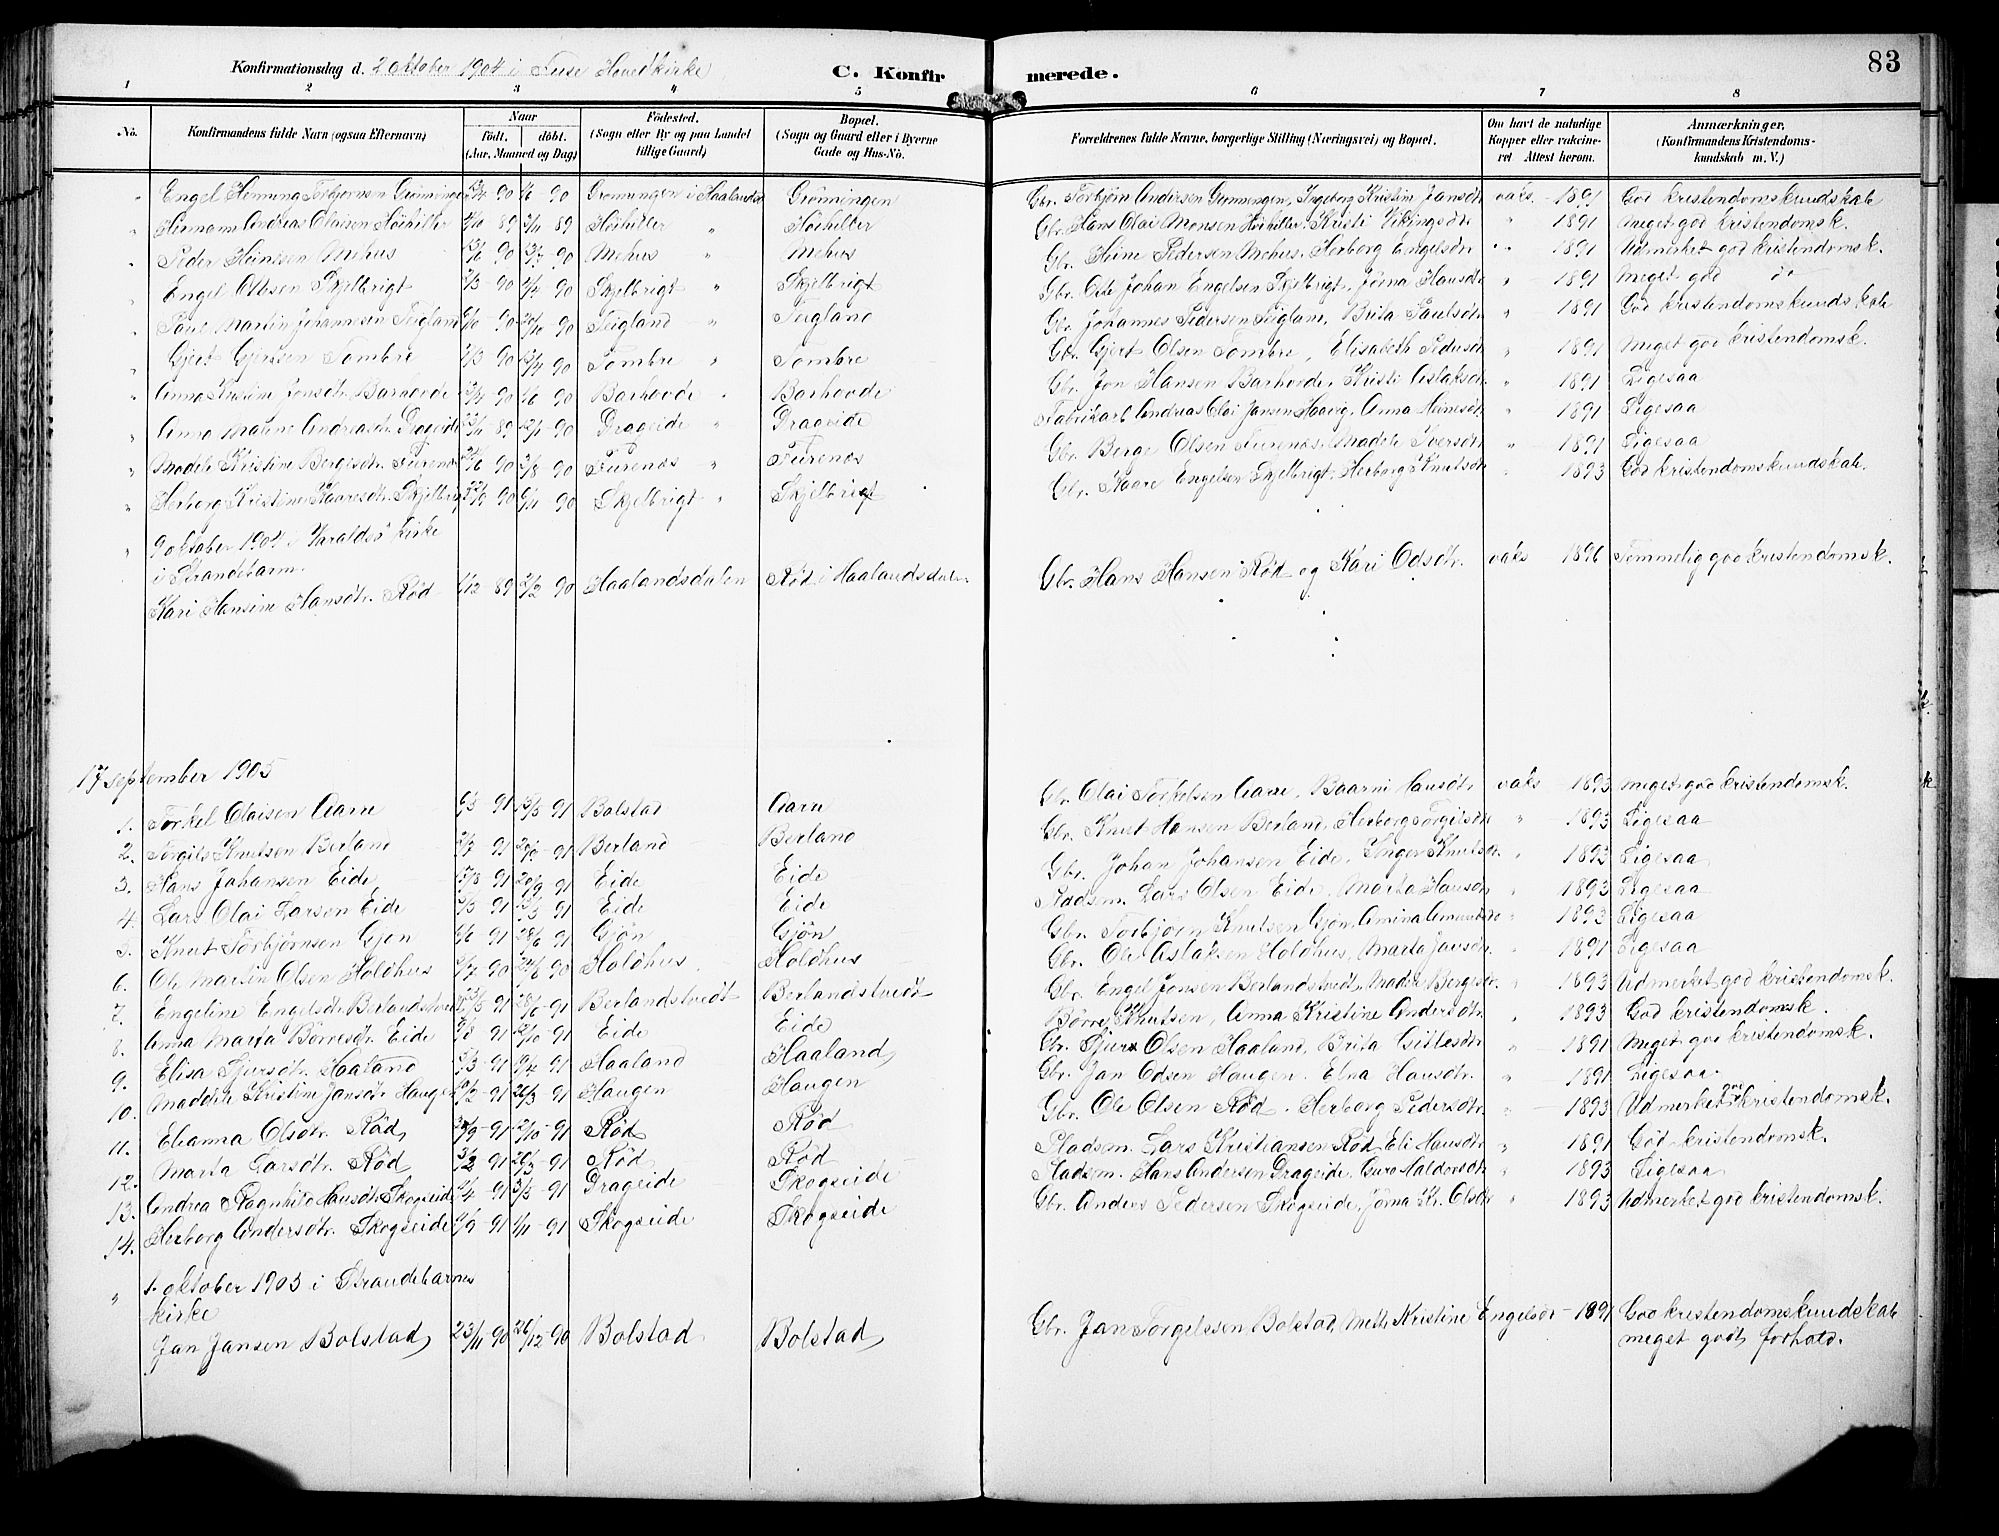 83
Konfirmationsdag d. 2 oktober 1904 i Fuse Hovedkirke C. Konfirmerede.
1 2 3 4 5 6 7 8
No. Konfirmandens fulde Navn (ogsaa Efternavn) Naar födt. döbt. (Aar, Maaned og Dag) Födested. (Sogn eller By og paa Landet tillige Gaard) Bopæl. (Sogn og Gaard eller i Byerne Gade og Hus-No. Forældrenes fulde Navne, borgerlige Stilling (Næringsvei) og Bopæl. Om havt de naturlige Kopper eller vakcineret Attest herom. Anmærkninger. (Konfirmandens Kristendomskundskab m. V.)
" Engel Torbjørnsen Grönningen 90 90 Grönningen i Haalandsd Grönningen Gbr. Torbjørn Andersen Grönningen, Ingeborg Kristin Jansdtr vaks. 1891 God kristendomskundskab
" Hermann Andreas Olaisen Höihiller 89 89 Höihiller " Höihiller Gbr. Hans Olai Monsen Höihiller, Kristi Vikingsdtr " 1891 Meget god kristendomsk.
" Peder Heinesen Mehus 90 90 Mehus " Mehus Gbr. Heine Pedersen Mehus, Herborg Engelsdtr " 1891 Udmerket god kristendomsk.
" Engel Olsen Skjelbrigt 90 90 Skjelbrigt " Skjelbrigt Gbr. Ole Johan Engelsen Skjelbrigt, Jörna Hansdtr " 1891 Meget god do
" Paul Martin Johannesen Teigland 90 90 Teigland " Teigland Gbr. Johannes Pedersen Teigland, Brita Paulsdtr " 1891 God kristendomskundskab
" Gjert Gjertsen Tombre 90 90 Tombre " Tombre Gbr. Gjert Olsen Tombre, Elisabeth Pedersdtr " 1891 Meget god kristendomsk.
" Anna Kristine Jonsdtr. Barhovde 90 90 Barhovde " Barhovde Gbr. Jon Hansen Barhovde, Kristi Aslaksdtr " 1891 Ligesaa
" Anna Maline Andreasdtr. Drageide 89 90 Drageide " Drageide Fabrikarb. Andreas Olai Jansen Haavig, Anna Heinesdtr " 1891 Ligesaa
" Madele Kristine Bergesdtr. Furenæs 90 90 Furenæs " Furenæs Gbr. Berge Olsen Furenæs, Madele Iversdtr " 1891 Ligesaa
" Herborg Kristine Kaaresdtr. Skjelbrigt 90 90 Skjelbrigt " Skjelbrigt Gbr. Kaare Engelsen Skjelbrigt, Herborg Knutsdtr " 1893 God kristendomskundskab.
" 9 oktober 1904 i Varaldsö kirke
i Strandebarm.
Kari Hansine Hansdtr. Röd 89 90 Haalandsdalen Röd i Haalandsdalen Gbr. Hans Hansen Röd og Kari Odsdtr. vaks 1896 Temmelig god kristendomsk.
17 september 1905
1. Torkel Olaisen Aarn 91 91 Bolstad Aarn Gbr. Olai Torkelsen Aarn, Baarni Hansdtr. vaks 1893 meget god kristendomsk.
2. Torgils Knutsen Berland 91 91 Berland Berland Gbr. Knut Hansen Berland, Herborg Torgilsdtr " 1893 Ligesaa
3. Hans Johansen Eide 91 91 Eide Eide Gbr. Johan Johansen Eide, Inger Knutsdtr. " 1893 Ligesaa
4. Lars Olai Larsen Eide 91 91 Eide Eide Pladsm. Lars Olsen Eide, Marta Hansdtr " 1893 Ligesaa
5. Knut Torbjörnsen Gjön 91 91 Gjön Gjön Gbr. Torbjörn Knutsen Gjön, Amina Amundsdtr " 1893 Ligesaa
6. Ole Martin Olsen Holdhus 90 90 Holdhus Holdhus Gbr. Ole Aslaksen Holdhus, Marta Jansdtr. " 1891 Ligesaa
7. Engeline Engelsdtr. Berlandstvedt 91 91 Berlandstvedt Berlandstvedt Gbr. Engel Jonsen Berlandstvedt, Madele Bergesdtr. " 1893 Udmerket god kristendomsk.
8. Anna Marta Börresdtr. Eide 91 91 Eide Eide Börre Knutsen, Anna Kristine Andersdtr. " 1893 God kristendomsk.
9. Elisa Sjursdtr. Haaland 91 91 Haaland Haaland Gbr. Sjur Olsen Haaland, Brita Gitlesdtr " 1891 Meget god kristendomsk.
10. Maddele Kristine Jansdtr Haugen 91 91 Haugen Haugen Gbr. Jan Odsen Haugen, Elna Hansdtr. " 1891 Ligesaa.
11. Elianna Olsdtr. Röd 91 91 Röd Röd Gbr. Ole Olsen Röd, Herborg Pedersdtr. " 1893 Udmerket god kristendomsk.
12. Marta Larsdtr. Röd 91 91 Röd Röd Pladsm. Lars Kristiansen Röd, Eli Hansdtr " 1891 God kristendomsk.
13. Andrea Ragnhild Hansdtr. Skogseide 91 91 Drageide Skogseide Pladsm. Hans Andersen Drageide, Guro Haldorsdtr " 1893 Ligesaa
14. Herborg Andersdtr. Skogseide 91 91 Skogseide Skogseide Gbr. Anders Pedersen Skogseide, Jörna Kr. Olsdtr " 1893 Udmerket god kristendomsk.
" 1. oktober 1905 i Strandebarms
kirke
Jan Jansen Bolstad 23/11 90 26/12 90 Bolstad Bolstad Gbr. Jan Torgelssen Bolstad, Mette Kristine Engelsdtr 1891 God kristendomskundskab
meget godt forhold.